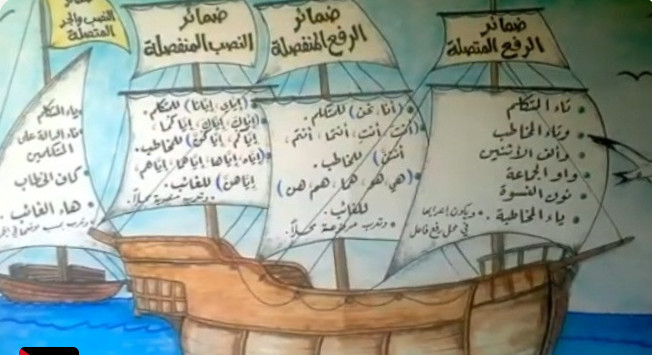 ضمائر
الرفع المتصلة
تاء المتكلم
وتاء المخاطب
وألف الاثنين
واو الجماعة
نون النسوة
ياء المخاطبة
ويكون إعرابها
في محل رفع فاعل
ضمائر
الرفع المنفصلة
(أنا، نحن) للمتكلم.
(أنتَ، أنتِ، أنتما، أنتم،
أنتنّ) للمخاطب.
(هي، هو، هما، هم هن)
للغائب.
وتعرب مرفوعة محلاً.
ضمائر
النصب المنفصلة
(إياي، إيانا) للمتكلم.
(إياكَ، إياكِ، إياكما،
إياكم، إياكنّ) للمخاطب.
(إياه، إياها، إياهما، إياهم
إياهنّ) للغائب.
وتعرب منصوبة محلاً.
ضمائر
النصب والجر
المتصلة
ياء المتكلم
الدالة على
المتكلمين
كاف الخطاب
هاء الغائب.